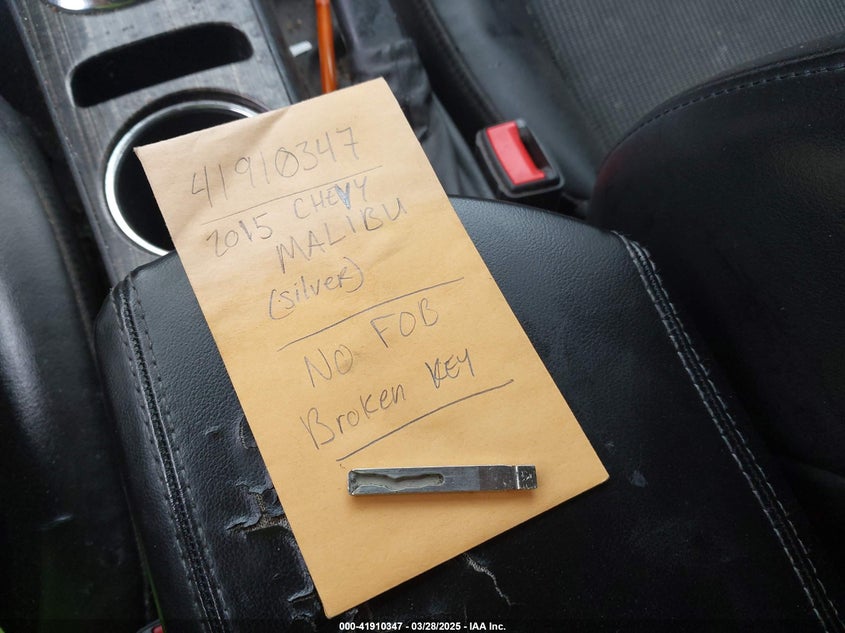 41910347
2015 CHEVY
MALIBU
(silver)
NO FOB
Broken KEY
000-41910347 - 03/28/2025 - IAA Inc.